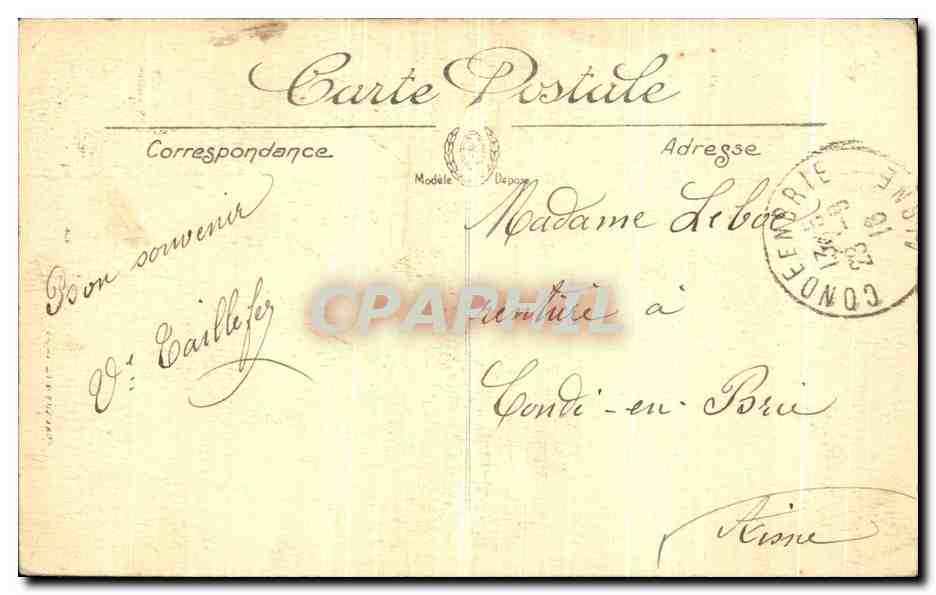 Carte Postale
Correspondance
Adresse
Modèle Déposé
Bon souvenir
Vve Taillefer
Madame Leboe
rentière à
Condé-en-Brie
Aisne
CONDE EN BRIE
AISNE
CPAPHIL